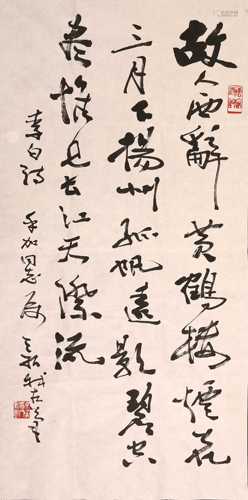 故人西辭黃鶴樓煙花
三月下揚州孤帆遠影碧空
盡惟見長江天際流
李白詩
同志屬